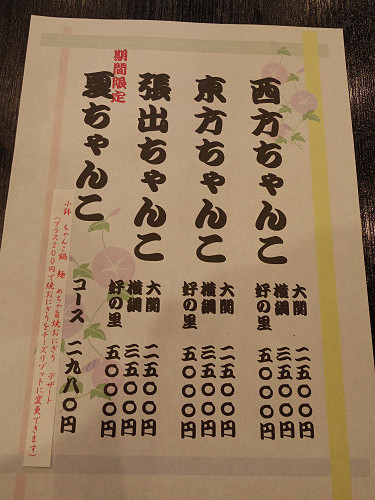 西方ちゃんこ
大関 二五〇〇円
横綱 三五〇〇円
好の里 五〇〇〇円
東方ちゃんこ
大関 二五〇〇円
横綱 三五〇〇円
好の里 五〇〇〇円
張出ちゃんこ
大関 二五〇〇円
横綱 三五〇〇円
好の里 五〇〇〇円
期間限定
夏ちゃんこ
コース 二九八〇円
小鉢 ちゃんこ鍋 麺 めちゃ旨焼おにぎり デザート
(プラス200円で焼おにぎりをチーズリゾットに変更できます)